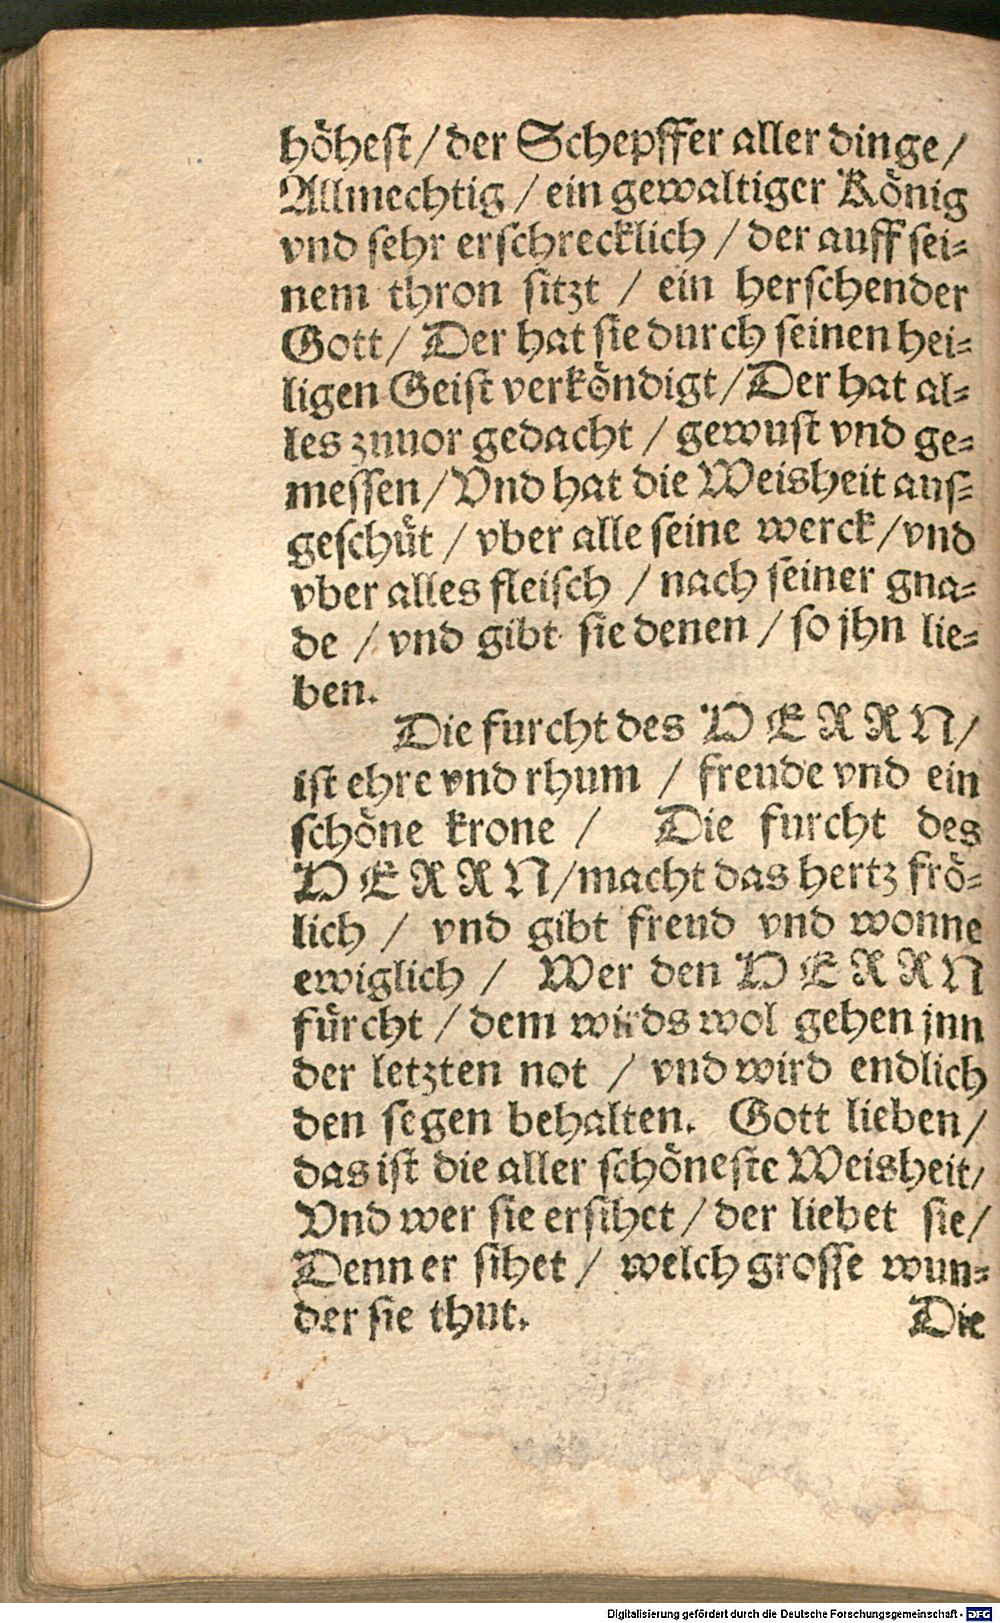 höhest / der Schepffer aller dinge /
Allmechtig / ein gewaltiger König
vnd sehr erschrecklich / der auff sei=
nem thron sitzt / ein herschender
Gott / Der hat sie durch seinen hei=
ligen Geist verköndigt / Der hat al=
les zuuor gedacht / gewust vnd ge=
messen / Vnd hat die Weisheit aus=
geschüt / vber alle seine werck / vnd
vber alles fleisch / nach seiner gna=
de / vnd gibt sie denen / so jhn lie=
ben.
Die furcht des HERRN /
ist ehre vnd rhum / freude vnd ein
schöne krone / Die furcht des
HERRN / macht das hertz frö=
lich / vnd gibt freud vnd wonne
ewiglich / Wer den HERRN
fürcht / dem wirds wol gehen jnn
der letzten not / vnd wird endlich
den segen behalten. Gott lieben /
das ist die aller schöneste Weisheit /
Vnd wer sie ersihet / der liebet sie /
Denn er sihet / welch grosse wun=
der sie thut. Die
Digitalisierung gefördert durch die Deutsche Forschungsgemeinschaft - DFG